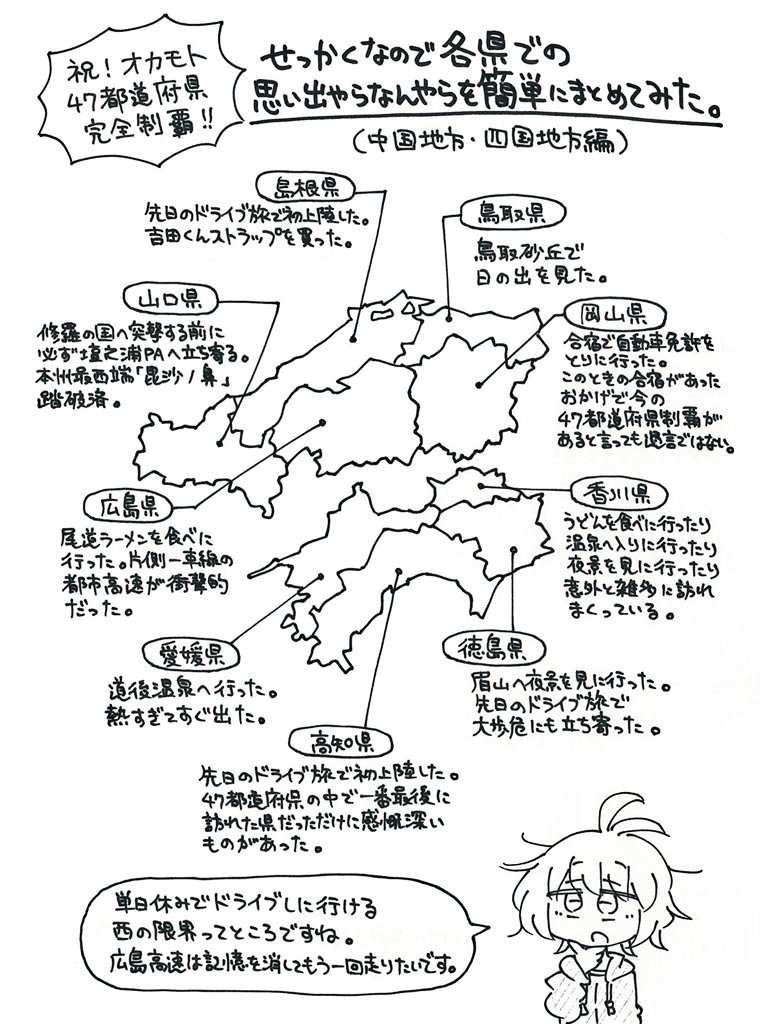 祝！オカモト
47都道府県
完全制覇!!
せっかくなので各県での
思い出やらなんやらを簡単にまとめてみた。
(中国地方・四国地方編)
島根県
先日のドライブ旅で初上陸した。
吉田くんストラップを買った。
鳥取県
鳥取砂丘で
日の出を見た。
山口県
修羅の国へ突撃する前に
必ず壇之浦PAへ立ち寄る。
本州最西端「毘沙ノ鼻」
踏破済。
岡山県
合宿で自動車免許を
とりに行った。
このときの合宿があった
おかげで今の
47都道府県制覇が
あると言っても過言ではない。
広島県
尾道ラーメンを食べに
行った。片側一車線の
都市高速が衝撃的
だった。
香川県
うどんを食べに行ったり
温泉へ入りに行ったり
夜景を見に行ったり
意外と雑多に訪れ
まくっている。
愛媛県
道後温泉へ行った。
熱すぎてすぐ出た。
徳島県
眉山へ夜景を見に行った。
先日のドライブ旅で
大歩危にも立ち寄った。
高知県
先日のドライブ旅で初上陸した。
47都道府県の中で一番最後に
訪れた県だっただけに感慨深い
ものがあった。
単日休みでドライブしに行ける
西の限界ってところですね。
広島高速は記憶を消してもう一回走りたいです。